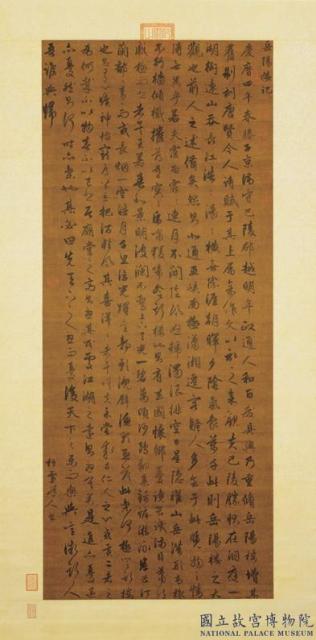 岳陽樓記
慶曆四年春滕子京謫守巴陵郡越明年政通人和百廢具興乃重修岳陽樓增其
舊制刻唐賢今人詩賦于其上屬予作文以記之予觀夫巴陵勝狀在洞庭一
湖銜遠山吞長江浩浩湯湯橫無際涯朝暉夕陰氣象萬千此則岳陽樓之大
觀也前人之述備矣然則北通巫峽南極瀟湘遷客騷人多會于此覽物之情
得無異乎若夫霪雨霏霏連月不開陰風怒號濁浪排空日星隱曜山岳潛形商旅
不行檣傾楫摧薄暮冥冥虎嘯猿啼登斯樓也則有去國懷鄉憂讒畏譏滿目蕭然
感極而悲者矣至若春和景明波瀾不驚上下天光一碧萬頃沙鷗翔集錦鱗游泳岸芷汀
蘭郁郁青青而或長煙一空皓月千里浮光躍金靜影沉璧漁歌互答此樂何極登斯樓
也則有心曠神怡寵辱皆忘把酒臨風其喜洋洋者矣嗟夫予嘗求古仁人之心或異二者之
為何哉不以物喜不以己悲居廟堂之高則憂其民處江湖之遠則憂其君是進亦憂退
亦憂然則何時而樂耶其必曰先天下之憂而憂後天下之樂而樂歟噫微斯人
吾誰與歸
國立故宮博物院
NATIONAL PALACE MUSEUM